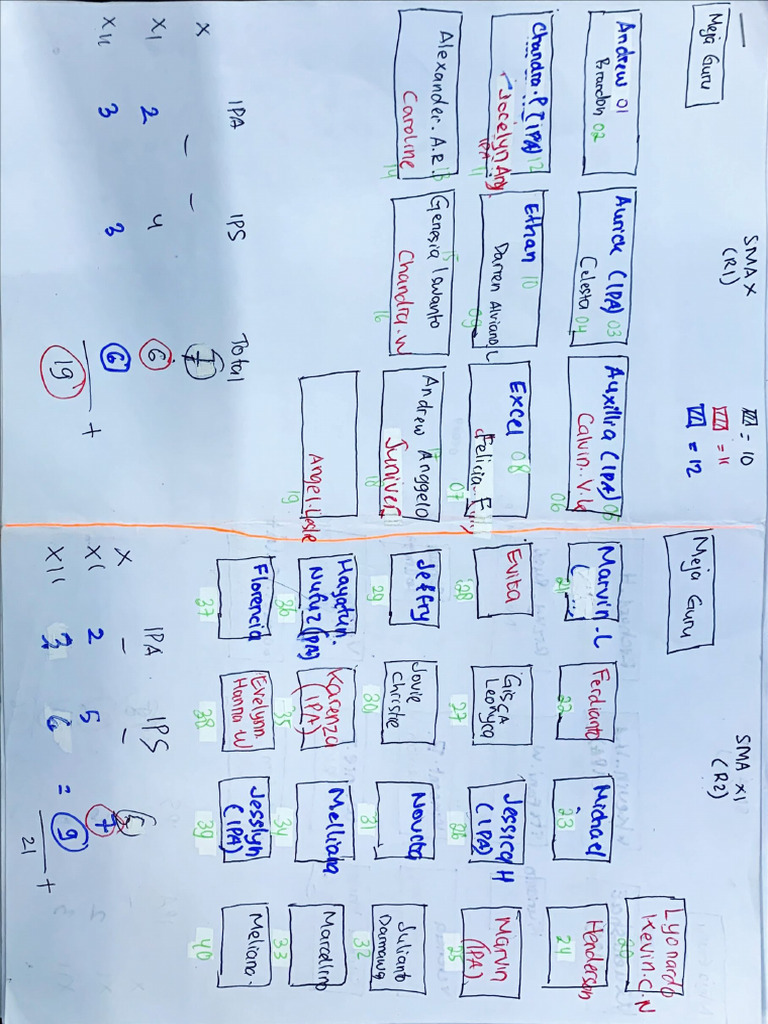 SMA X
(R1)
X = 10
XI = 11
XII = 12
Meja Guru
Andrew 01
Brandon 02
Aurick (IPA) 03
Celesta 04
Auxillia (IPA) 05
Calvin. V. Le
06
Chandra. P (IPA) 12
Jocelyn
IPA 11
Ethan 10
Darren Alviano. L
09
Excel 08
Felicia. F
07
Alexander. A.R. 13
Caroline
14
15
Genesia Iswanto
Chandra. W
16
17
Andrew Anggelo
Juniver
18
Angel. Leslie
19
IPA IPS Total
X - - 7
XI 2 4 6
XII 3 3 6
+
19
SMA XI
(R2)
Meja Guru
Lyonardo
Kevin. C. N
20
Marvin. L
21
Ferdianto
22
Michael
23
Henderson
24
Evita
28
Gisca
Leonyca
27
Jessica H
(IPA)
26
Marvin
(IPA)
25
Jeffry
29
Jovie
Christie
30
Novita
31
Julianto
Darmawa
32
Hayatun.
Nufuz (IPA)
36
Karenza
(IPA)
35
Melliana
34
Marcelino
33
Florencia
37
Evelynn.
Hanna. W
38
Jesslyn
(IPA)
39
Meliana.
40
IPA IPS
X - -
XI 2 5 7
XII 3 6 = 9
+
21